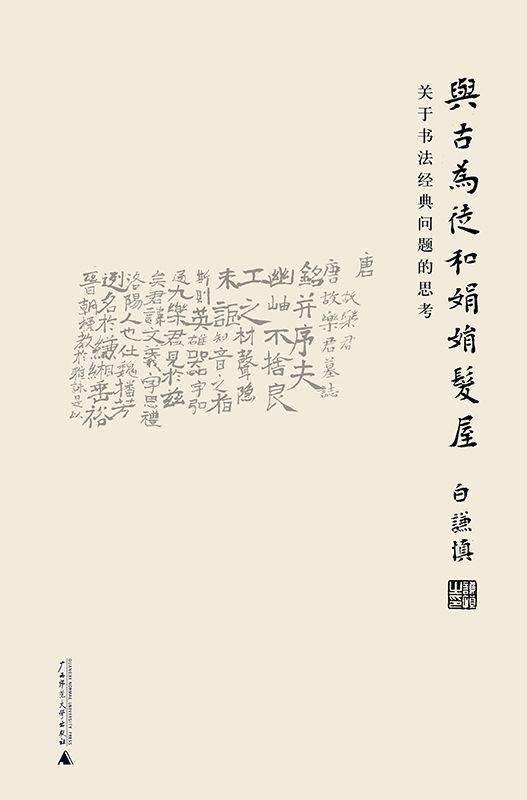 與古為徒和娟娟髮屋
关于书法经典问题的思考
白謙慎
唐
故樂君
唐故樂君墓誌
銘并序夫
幽岫不捨良
工之材聲隐
未謳知音之指
斯則英雄器字弘
通九樂君見於兹
矣君諱文義字思禮
洛陽人也仕魏播芳
迥名於縑緗垂裕
晉朝授教於雅詠是以
广西师范大学出版社
GUANGXI NORMAL UNIVERSITY PRESS